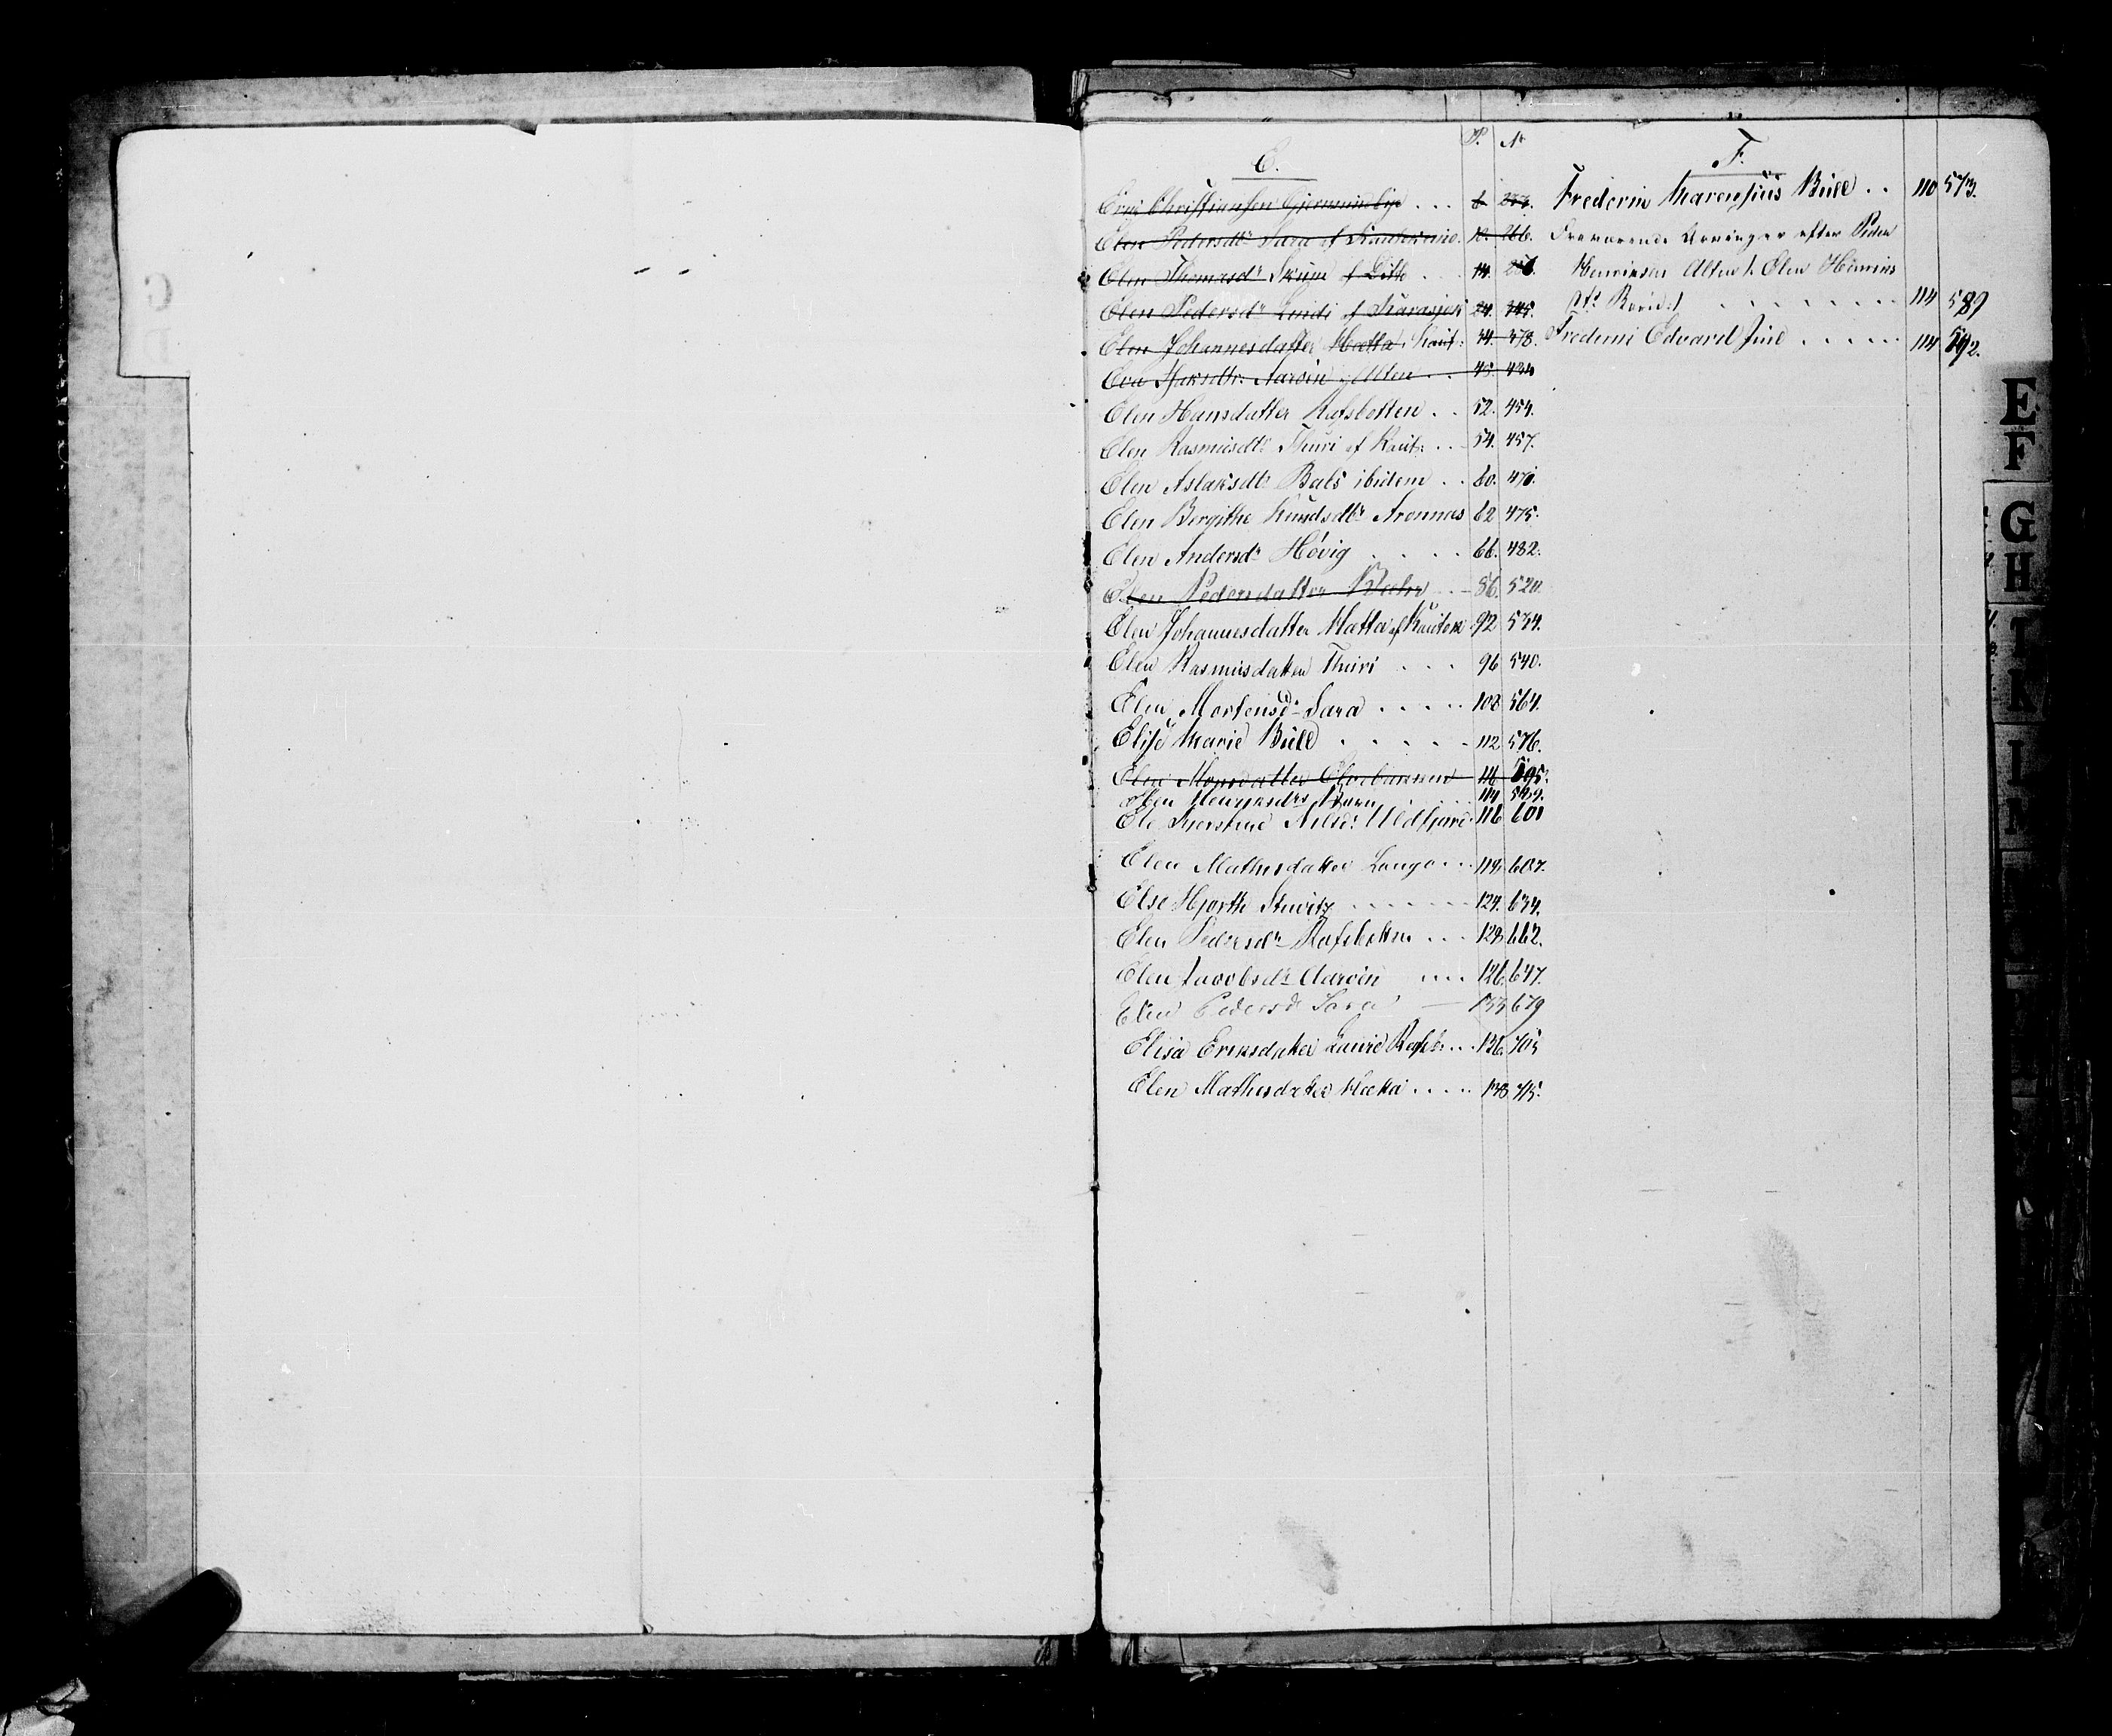 P. No
E.
Eric Christiansen . . . 6 257.
Elen Pedersdr Sara af Kautokeino. 10. 266.
Elen Thomasdr Skum af 14.
Elen Pedersdr Lindi af Karasjok 24.
Elen Johannesdatter Hætta Kaut: 34. 378.
Eva Isaksdtr. Aarøin Alten . . 45. 434
Elen Hansdatter Rafsbotten . . 52. 454.
Elen Rasmusdtr Thuri af Kaut: . . 54. 457.
Elen Aslaksdtr Bals ibidem . . 60. 470.
Elen Bergithe Knudsdtr Aronnæs 62 475.
Elen Andersdr Høvig . . . . 66. 482.
Elen Pedersdatter Bæhr . . 86. 520.
Elen Johannesdatter Hætta af Kautok 92 534.
Elen Rasmusdatter Thuri . . . 96 540.
Elen Mortensdr Sara . . . . . 108 564.
Elise Marie Büll . . . . . 112 576.
Elen Monsdatter Elvebakken 116 595.
Elen Henriksdr 114 589.
Nilsd: 116 601
Elen Mathisdatter Lango . . . 118 607.
Else Hjorth Stuwitz . . . . . . 124. 634.
Elen Pedersdr Rafsbotten . . . 129 662.
Elen Jacobsdr Aarøen . . . . 126. 647.
Elen Pedersd Sara — 133 679
Elisa Eriksdatter Rafsb: . . . 136. 705
Elen Mathisdatter Hætta . . . . . 138 715.
F.
Frederik Marensius Büll . . 110 573.
Fraværende Arvinger efter Peder
Henriksen Alten /: Elen Henriks
. . . . . . . . 114 589
Fredrik Edvard Juul . . . . . 114 592.
E
F
G
H
I
K
L